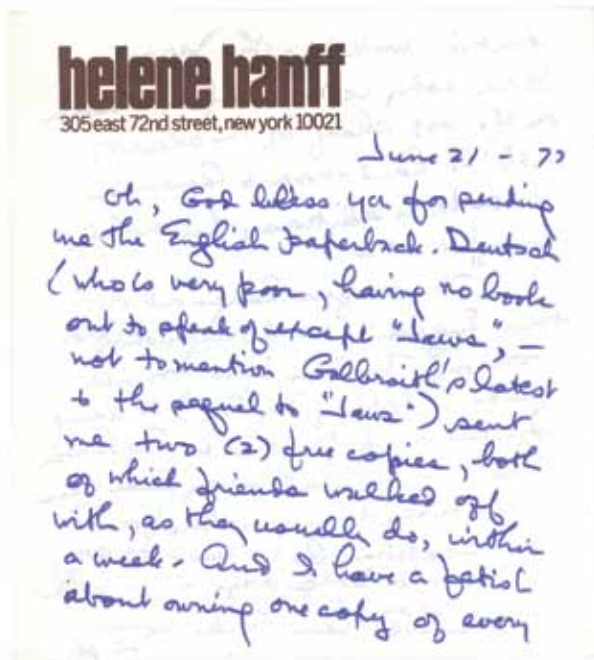 helene hanff
305 east 72nd street, new york 10021
June 21 - 77
Oh, God bless ya for sending
me the English paperback. Deutsch
(who is very poor, having no book
out to speak of except "Jaws", —
not to mention Galbraith's latest
& the sequel to "Jaws") sent
me two (2) free copies, both
of which friends walked off
with, as they usually do, within
a week. And I have a fetish
about owning one copy of every